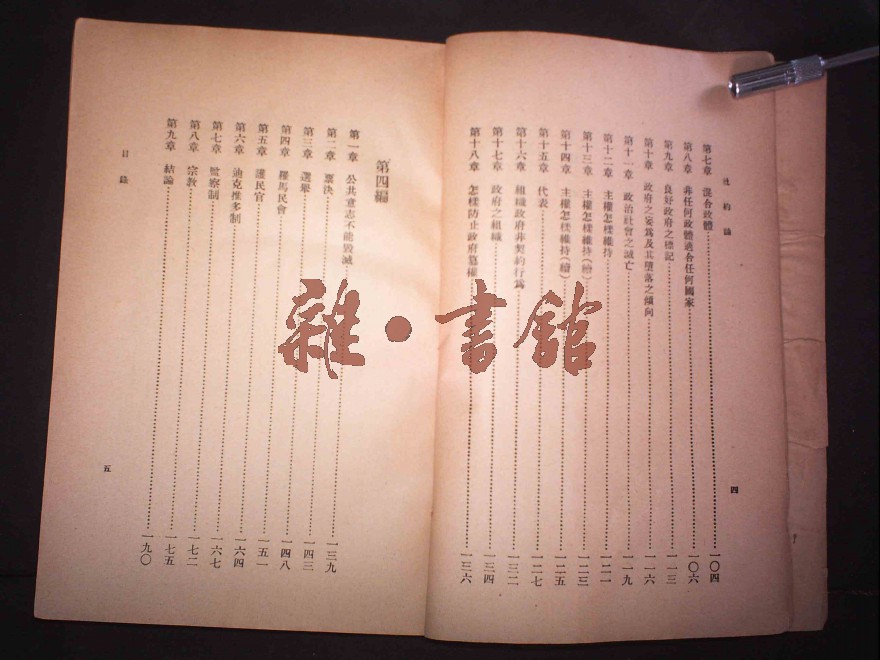 社約論
第七章 混合政體 一〇四
第八章 非任何政體適合任何國家 一〇六
第九章 良好政府之標記 一一三
第十章 政府之妄爲及其墮落之傾向 一一六
第十一章 政治社會之滅亡 一一九
第十二章 主權怎樣維持 一二一
第十三章 主權怎樣維持(續) 一二三
第十四章 主權怎樣維持(續) 一二五
第十五章 代表 一二七
第十六章 組織政府非契約行爲 一三二
第十七章 政府之組織 一三四
第十八章 怎樣防止政府篡權 一三六
四
第四編
第一章 公共意志不能毀滅 一三九
第二章 票決 一四三
第三章 選舉 一四八
第四章 羅馬民會 一五一
第五章 護民官 一六四
第六章 迪克推多制 一六七
第七章 監察制 一七二
第八章 宗教 一七五
第九章 結論 一九〇
目錄
五
雜·書館